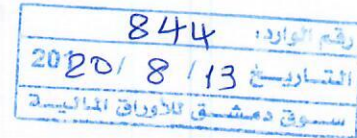 رقم الوارد: 844
التاريخ 13 / 8 / 2020
سوق دمشق للأوراق المالية